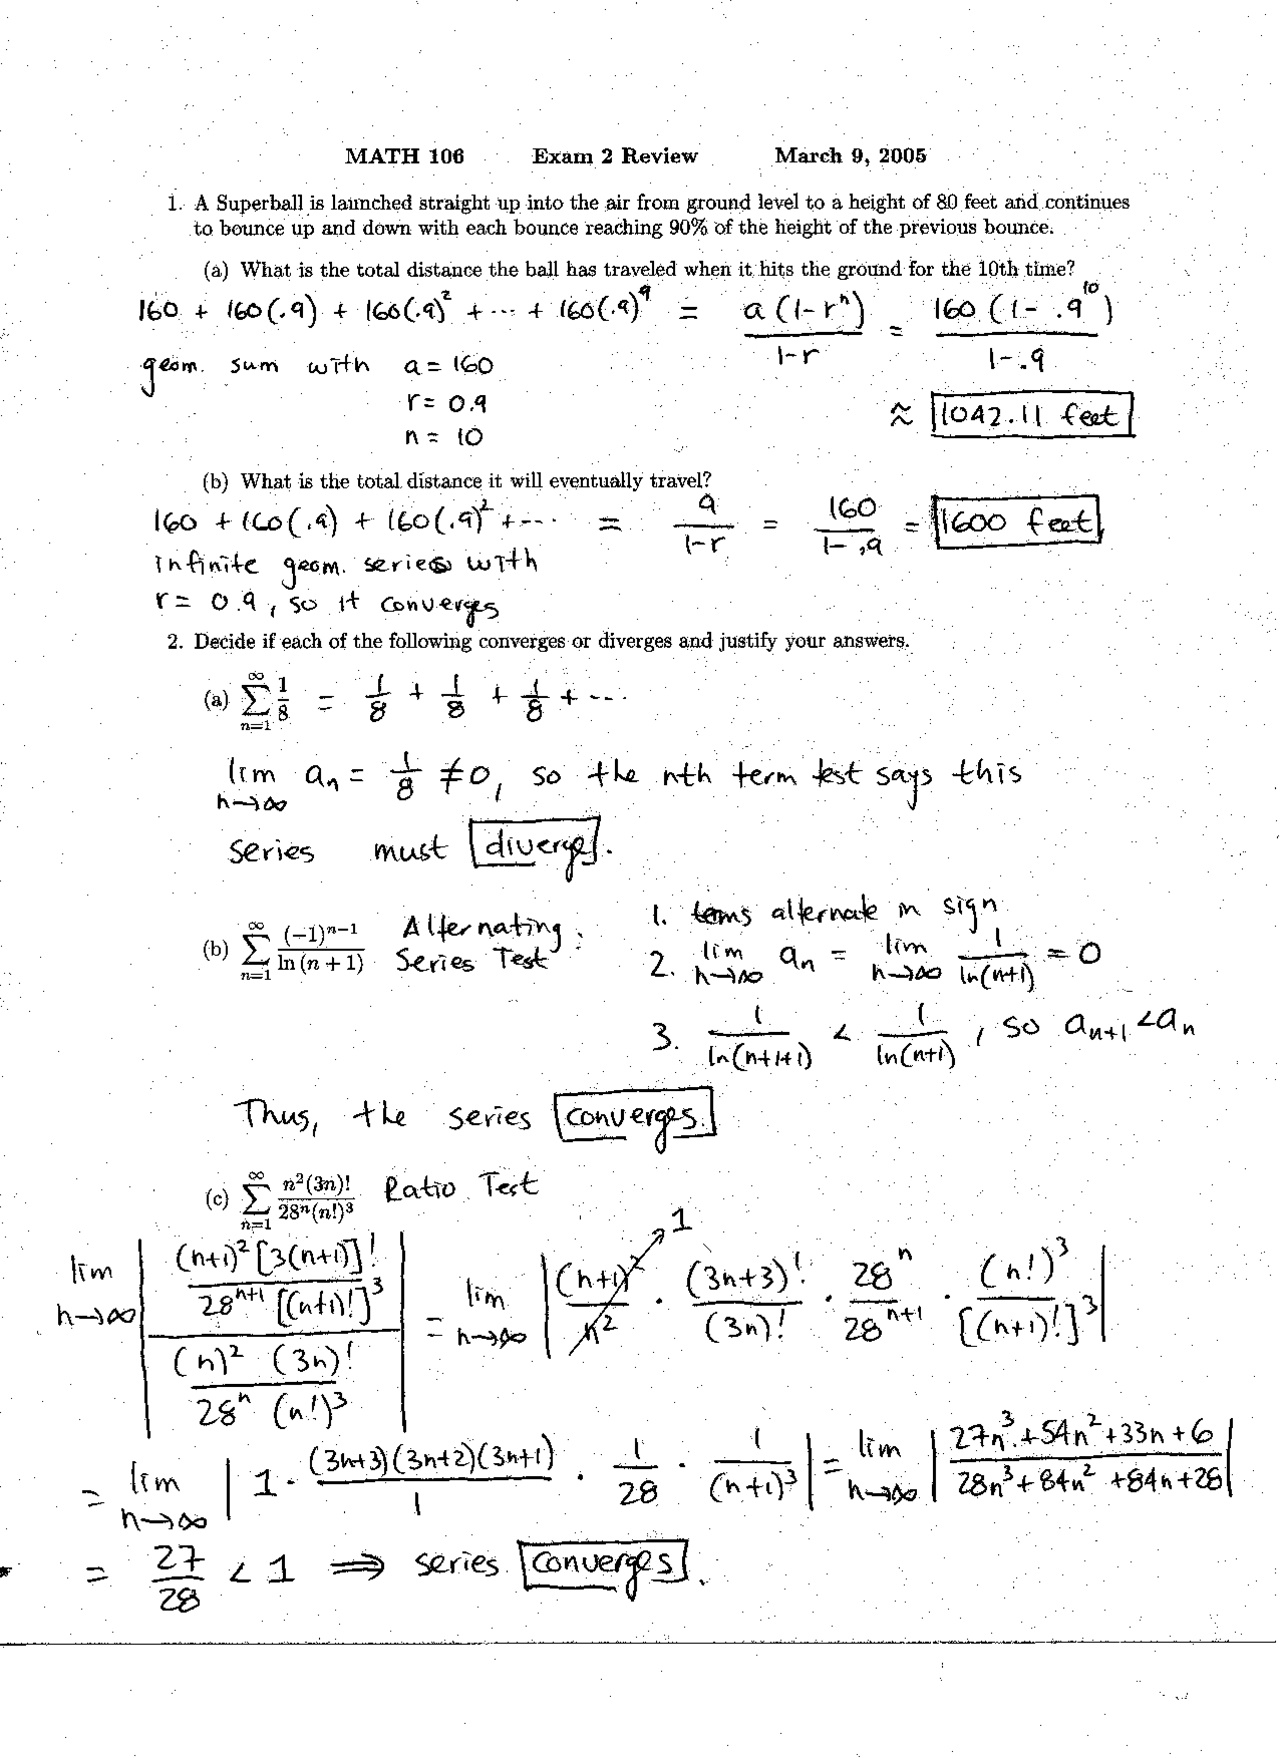 MATH 106 Exam 2 Review March 9, 2005
1. A Superball is launched straight up into the air from ground level to a height of 80 feet and continues
to bounce up and down with each bounce reaching 90% of the height of the previous bounce.
(a) What is the total distance the ball has traveled when it hits the ground for the 10th time?
160 + 160(.9) + 160(.9)^2 + ... + 160(.9)^9 = a(1-r^n)/(1-r) = 160(1-.9^10)/(1-.9)
geom. sum with a = 160
r = 0.9
n = 10
≈ 1042.11 feet
(b) What is the total distance it will eventually travel?
160 + 160(.9) + 160(.9)^2 + ... = a/(1-r) = 160/(1-.9) = 1600 feet
infinite geom. series with
r = 0.9, so it converges
2. Decide if each of the following converges or diverges and justify your answers.
(a) ∑_{n=1}^{∞} 1/8 = 1/8 + 1/8 + 1/8 + ...
lim_{n→∞} a_n = 1/8 ≠ 0, so the nth term test says this
series must diverge.
(b) ∑_{n=1}^{∞} (-1)^{n-1}/ln(n+1) Alternating Series Test:
1. terms alternate in sign
2. lim_{n→∞} a_n = lim_{n→∞} 1/ln(n+1) = 0
3. 1/ln(n+1+1) < 1/ln(n+1), so a_{n+1} < a_n
Thus, the series converges.
(c) ∑_{n=1}^{∞} n^2(3n)!/(28^n(n!)^3) Ratio Test
lim_{n→∞} | ((n+1)^2[3(n+1)]!/(28^{n+1}[(n+1)!]^3)) / ((n)^2(3n)!/(28^n(n!)^3)) | = lim_{n→∞} | (n+1)^2/n^2 → 1 · (3n+3)!/(3n)! · 28^n/28^{n+1} · (n!)^3/[(n+1)!]^3 |
= lim_{n→∞} | 1 · (3n+3)(3n+2)(3n+1)/1 · 1/28 · 1/(n+1)^3 | = lim_{n→∞} | (27n^3+54n^2+33n+6)/(28n^3+84n^2+84n+28) |
= 27/28 < 1 ⟹ series converges.